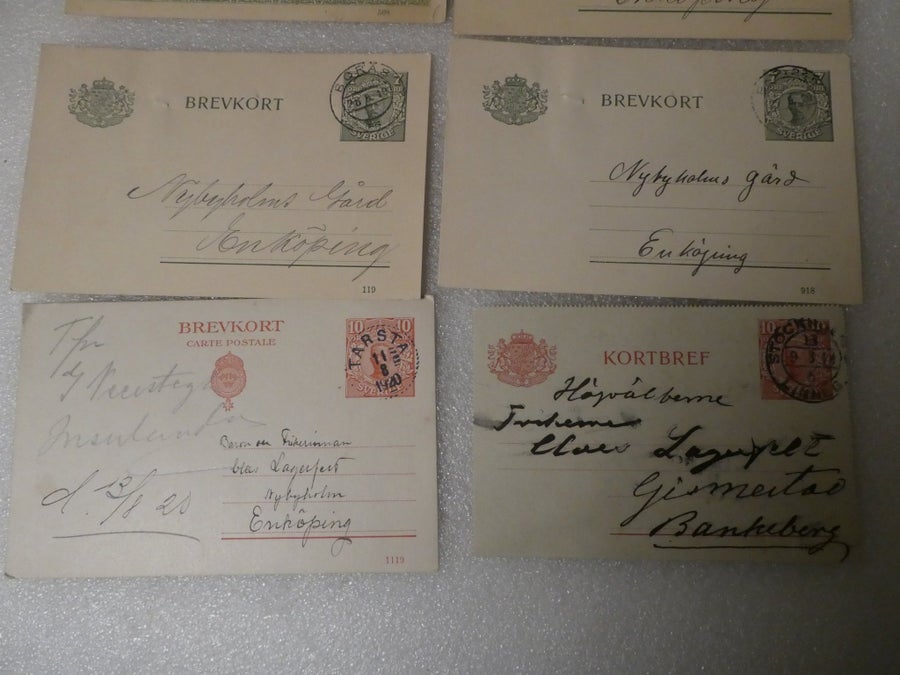 508
Enköping
BREVKORT
BORÅS
SVERIGE
Nybyholms Gård
Enköping
119
BREVKORT
SVERIGE
Nybyholms gård
Enköping
918
BREVKORT
CARTE POSTALE
10 10
TARSTA
11
8
1920
SVERIGE
d. 13/8 20
Baron och Friherrinnan
Claes Lagerfelt
Nybyholm
Enköping
1119
KORTBREF
10
STOCKHOLM
13
Högvälborne
Friherre
Claes Lagerfelt
Gismestad
Bankeberg